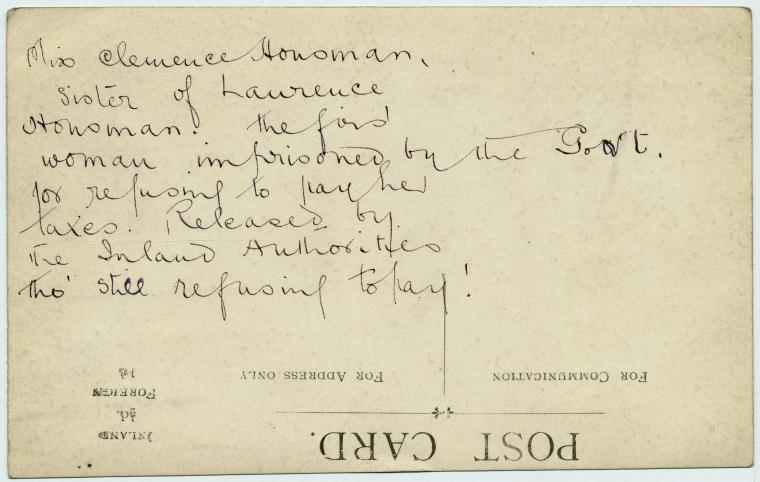 Miss Clemence Housman.
Sister of Laurence
Housman. The first
woman imprisoned by the Govt.
for refusing to pay her
taxes. Released by
the Inland Authorities
tho' still refusing to pay!
FOR COMMUNICATION
FOR ADDRESS ONLY
POST CARD.
INLAND
½d.
FOREIGN
1d.